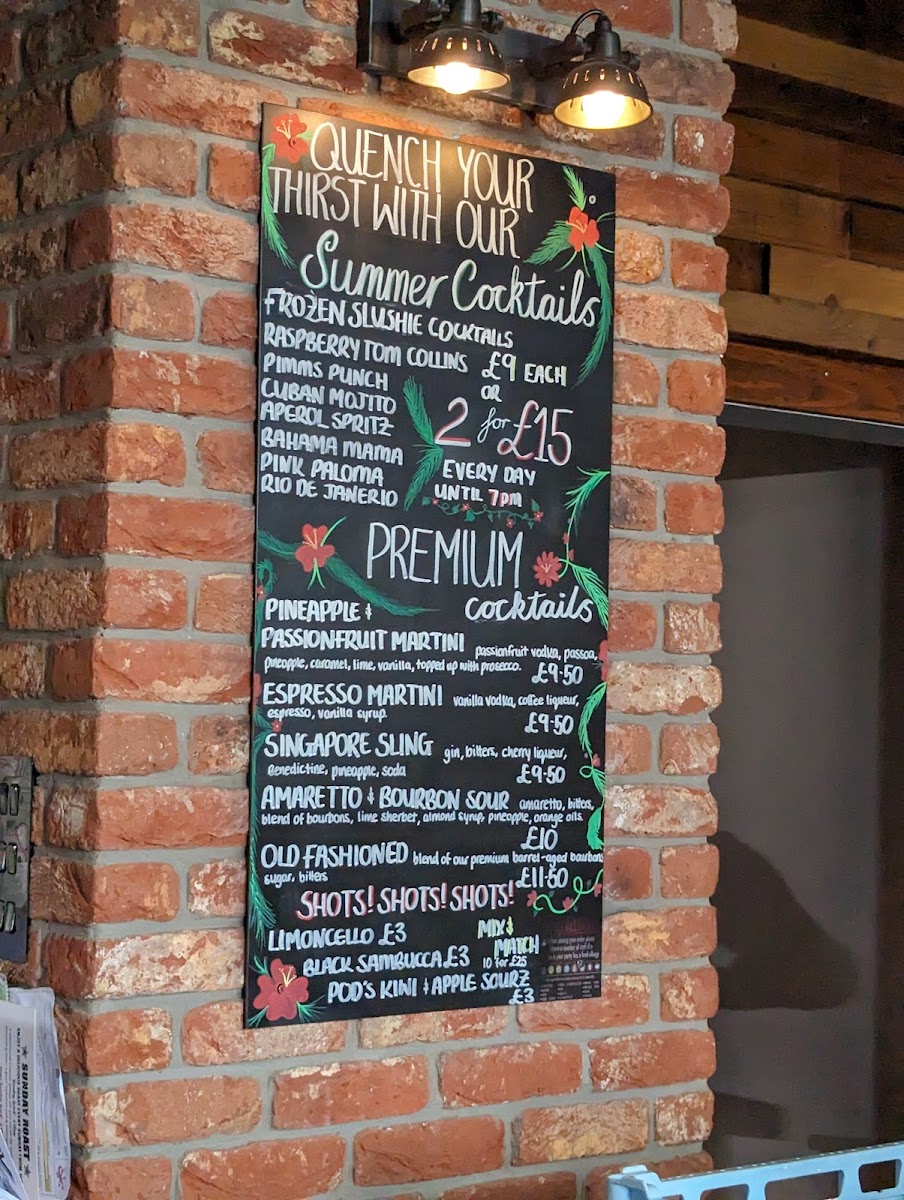 QUENCH YOUR
THIRST WITH OUR
Summer Cocktails
FROZEN SLUSHIE COCKTAILS
RASPBERRY TOM COLLINS
PIMMS PUNCH
CUBAN MOJITO
APEROL SPRITZ
BAHAMA MAMA
PINK PALOMA
RIO DE JANERIO
£9 EACH
OR
2 for £15
EVERY DAY
UNTIL 7pm
PREMIUM
cocktails
PINEAPPLE &
PASSIONFRUIT MARTINI passionfruit vodka, passoa,
pineapple, caramel, lime, vanilla, topped up with prosecco.
£9.50
ESPRESSO MARTINI vanilla vodka, coffee liqueur,
espresso, vanilla syrup.
£9.50
SINGAPORE SLING gin, bitters, cherry liqueur,
Benedictine, pineapple, soda
£9.50
AMARETTO & BOURBON SOUR amaretto, bitters,
blend of bourbons, lime sherbet, almond syrup, pineapple, orange oils.
£10
OLD FASHIONED blend of our premium barrel-aged bourbons
sugar, bitters
£11.50
SHOTS! SHOTS! SHOTS!
LIMONCELLO £3
BLACK SAMBUCCA £3
POD'S KIWI & APPLE SOURZ
£3
MIX &
MATCH
10 for £25
SUNDAY ROAST